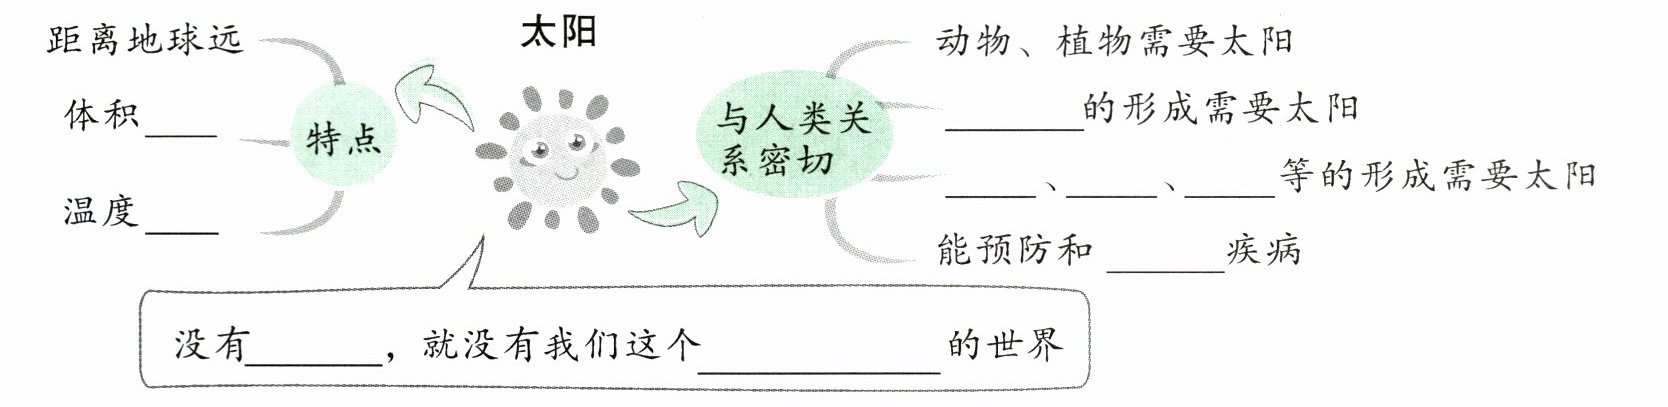 太阳
距离地球远
体积____
温度____
特点
与人类关
系密切
动物、植物需要太阳
______的形成需要太阳
____、____、____等的形成需要太阳
能预防和______疾病
没有______，就没有我们这个__________的世界